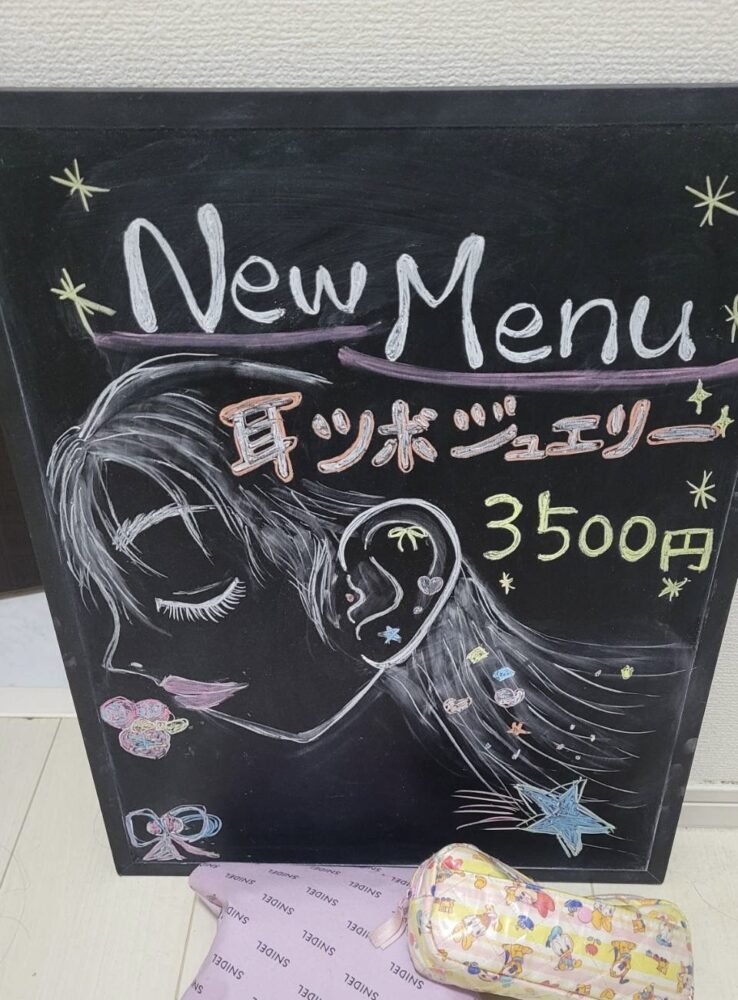 New Menu
耳ツボジュエリー
3500円
SNIDEL SNIDEL SNIDEL
SNIDEL SNIDEL SNIDEL
SNIDEL SNIDEL SNIDEL
SNIDEL SNIDEL